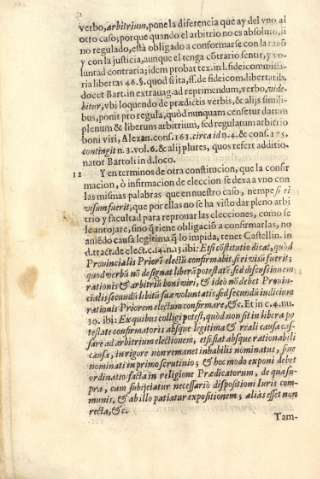 verbo, arbitrium, pone la diferencia que ay del vno al
otro caso; porque quando el arbitrio no es absoluto, si
no regulado, està obligado a conformarse con la razõ
y con la justicia, aunque el tenga cõtrario sentir, y vo-
luntad contraria; idem probat tex. in l. fideicommissa-
ria libertas 46. §. quod si ita, ff. de fideicom. libertatib.
docet Bart. in extrauag. ad reprimendum, verbo, vide-
bitur, vbi loquendo de prædictis verbis, & alijs simili-
bus, ponit pro regula, quòd nunquam censetur datum
plenum & liberum arbitrium, sed regulatum arbitrio
boni viri, Alexan. conf. 163. circa id n. 4. & conf. 175.
contingit n. 3. vol. 6. & alij plures, quos refert additio-
nator Bartoli in d. loco.
12 Y en terminos de otra constitucion, que la confir
macion, ò infirmacion de eleccion se dexa a vno con
las mismas palabras que en nuestro caso, nempe si ei
visum fuerit, que por ellas no se ha visto dar pleno arbi
trio y facultad para reprouar las elecciones, como se
le antojare, sino q̃ tiene obligaciõ a confirmarlas, no
auiẽdo causa legitima q̃ lo impida, tenet Castellin. in
d. tract. de elect. c. 14. n. 13. ibi: Etsi cõstitutio dicat, quòd
Provincialis Priori electũ confirmabit, si ei visũ fuerit;
quod verbũ nõ designat liberã potestatẽ, sed discussionem
rationis & arbitriũ boni viri, & ideò nõ debet Provin-
cialis secundũ libitũ suæ voluntatis, sed secundũ iudicium
rationis Priorem electum confirmare, &c. Et in c. 4. nu.
30. ibi: Ex quibus colligi potest, quòd non sit in libera po
testate confirmatoris absque legitima & reali causa cas-
sare ad arbitrium electionem, etsi fiat absque rationabili
causa, in rigore non remanet inhabilis nominatus, sine
nominati in primo scrutinio; & hoc modo exponi debet
ordinatio facta in religione Prædicatorum, de qua su-
pra, cum subijciatur necessariò dispositioni Iuris com-
munis, & ab illo patiatur expositionem; aliàs esset non
recta, &c.
Tam-